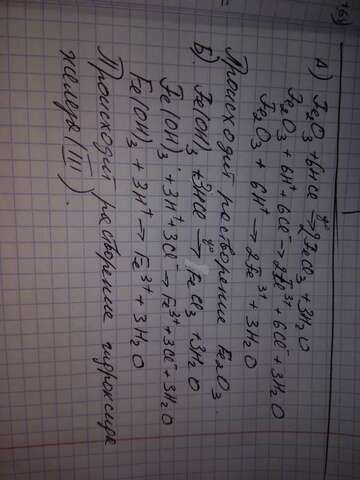 А) Fe₂O₃ + 6HCl →t° 2FeCl₃ + 3H₂O
Fe₂O₃ + 6H⁺ + 6Cl⁻ → 2Fe³⁺ + 6Cl⁻ + 3H₂O
Fe₂O₃ + 6H⁺ → 2Fe³⁺ + 3H₂O
Происходит растворение Fe₂O₃.
Б). Fe(OH)₃ + 3HCl →t° FeCl₃ + 3H₂O
Fe(OH)₃ + 3H⁺ + 3Cl⁻ → Fe³⁺ + 3Cl⁻ + 3H₂O
Fe(OH)₃ + 3H⁺ → Fe³⁺ + 3H₂O
Происходит растворение гидроксида
железа (III).